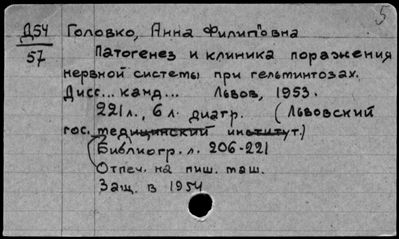 5
Д54 Головко, Анна Филип'овна
57 Патогенез и клиника поражения
нервной системы при гельминтозах.
Дисс... канд... Львов, 1953.
221 л., 6 л. диагр. (Львовский
гос. медицинский институт.)
Библиогр. л. 206-221
Отпеч. на пиш. маш.
Защ. в 1954